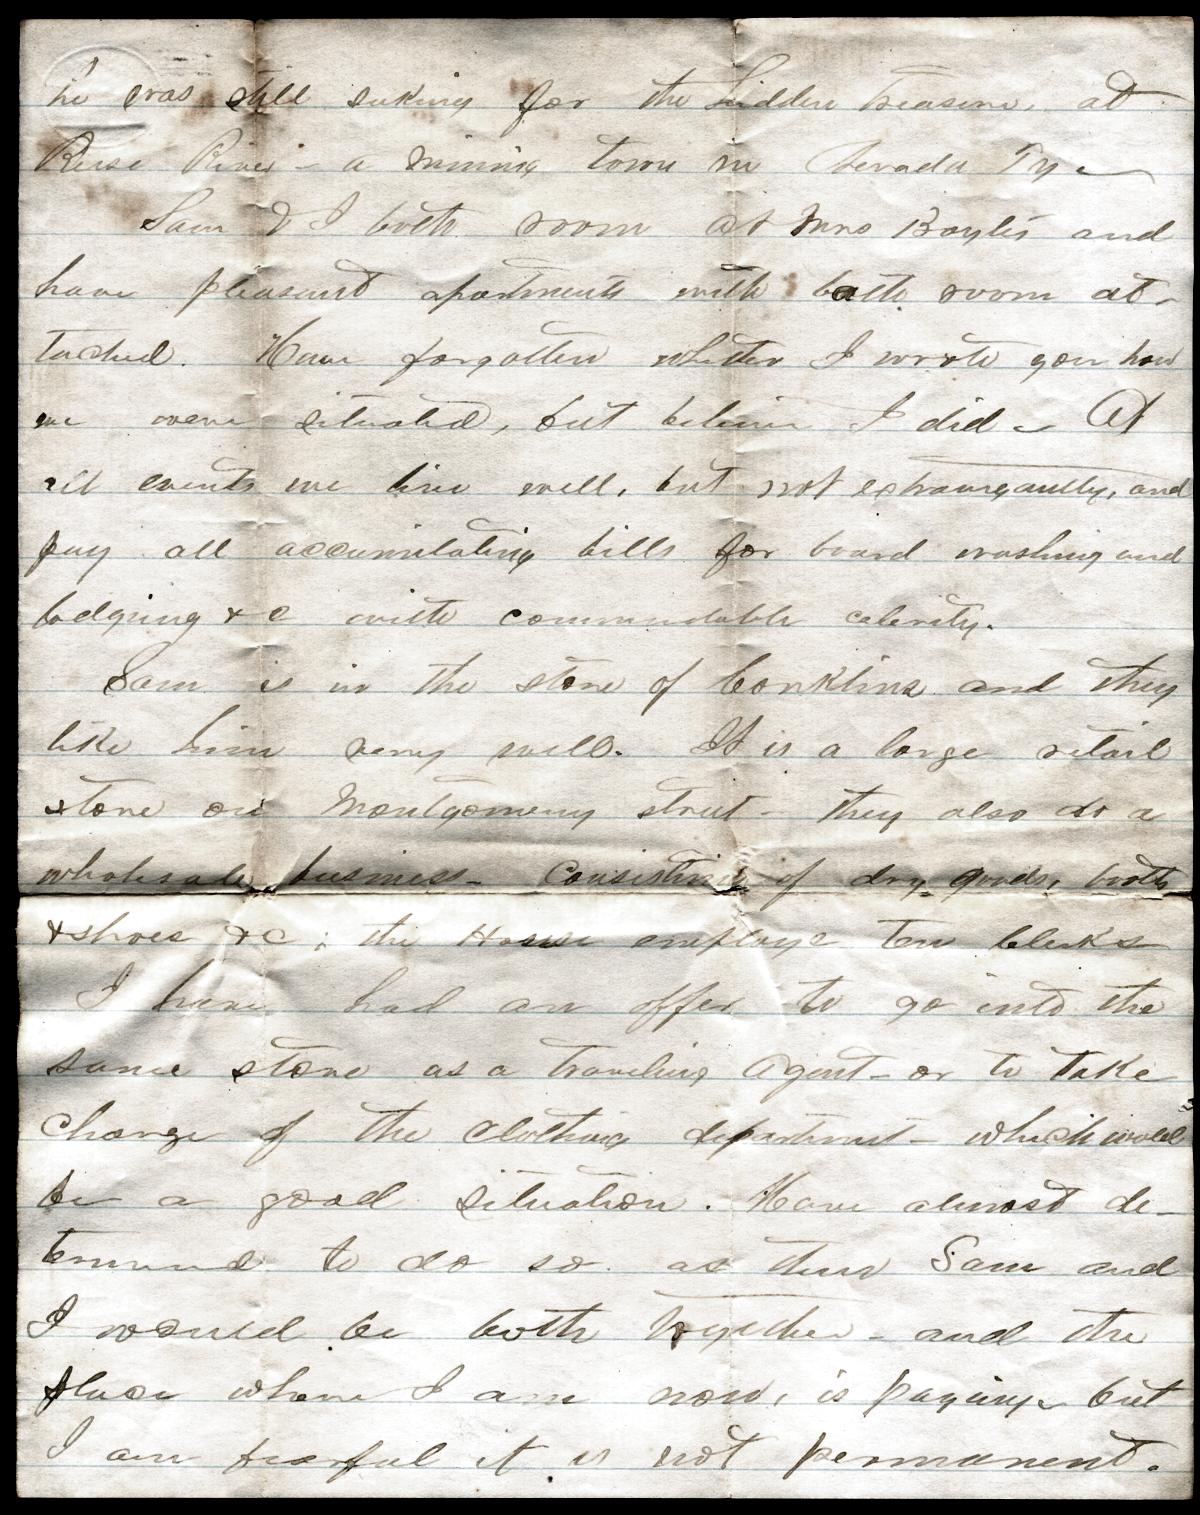 he was still seeking for the hidden treasure, at
Reese River - a mining town in Nevada Ty -
Sam & I both room at Mrs Boyles and
have pleasant apartments with bath room at-
tached. Have forgotten whether I wrote you how
we were situated, but believe I did - At
all events we live well, but not extravagantly, and
pay all accumilating bills for board washing and
lodgning & c with commendable celerity.
Sam is in the store of Conklins and they
like him very well. It is a large retail
store on Montgomery street - they also do a
wholesale business - Consisting of dry goods, boots
& shoes &c; the House employe ten clerks
I have had an offer to go into the
same store as a traveling Agent - or to take
charge of the clothing department - which would
be a good situation. Have almost de-
termined to do so as then Sam and
I would be both together - and the
place where I am now, is paying - but
I am fearful it is not permanent.